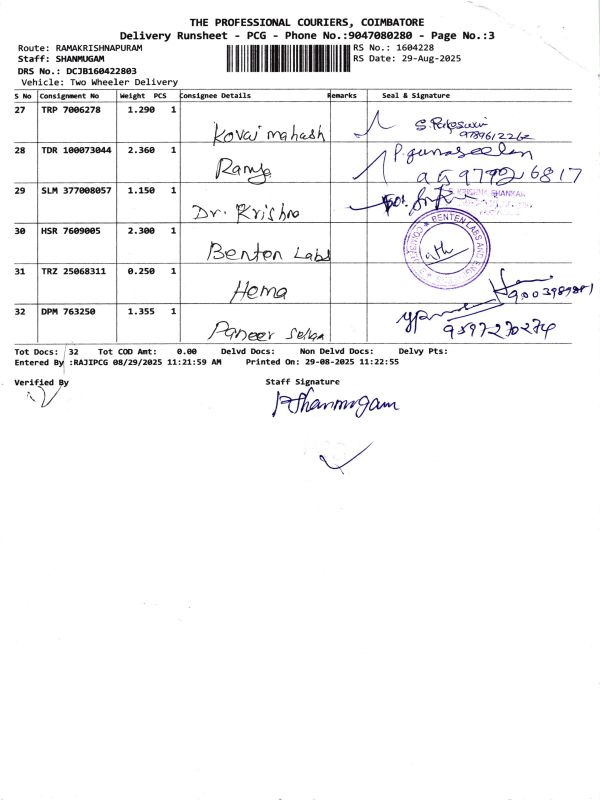 THE PROFESSIONAL COURIERS, COIMBATORE
Delivery Runsheet - PCG - Phone No.:9047080280 - Page No.:3
Route: RAMAKRISHNAPURAM RS No.: 1604228
Staff: SHANMUGAM RS Date: 29-Aug-2025
DRS No.: DCJB160422803
Vehicle: Two Wheeler Delivery
S No Consignment No Weight PCS Consignee Details Remarks Seal & Signature
27 TRP 7006278 1.290 1
Kovai mahash
28 TDR 100073044 2.360 1
Ramya
29 SLM 377008057 1.150 1
Dr. Krishna
30 HSR 7609005 2.300 1
BENTEN LABS AND
Benten Labs
31 TRZ 25068311 0.250 1
Hema
9003989881
32 DPM 763250 1.355 1
Paneer Selvam
9597270274
Tot Docs: 32 Tot COD Amt: 0.00 Delvd Docs: Non Delvd Docs: Delvy Pts:
Entered By :RAJIPCG 08/29/2025 11:21:59 AM Printed On: 29-08-2025 11:22:55
Verified By Staff Signature
Shanmugam